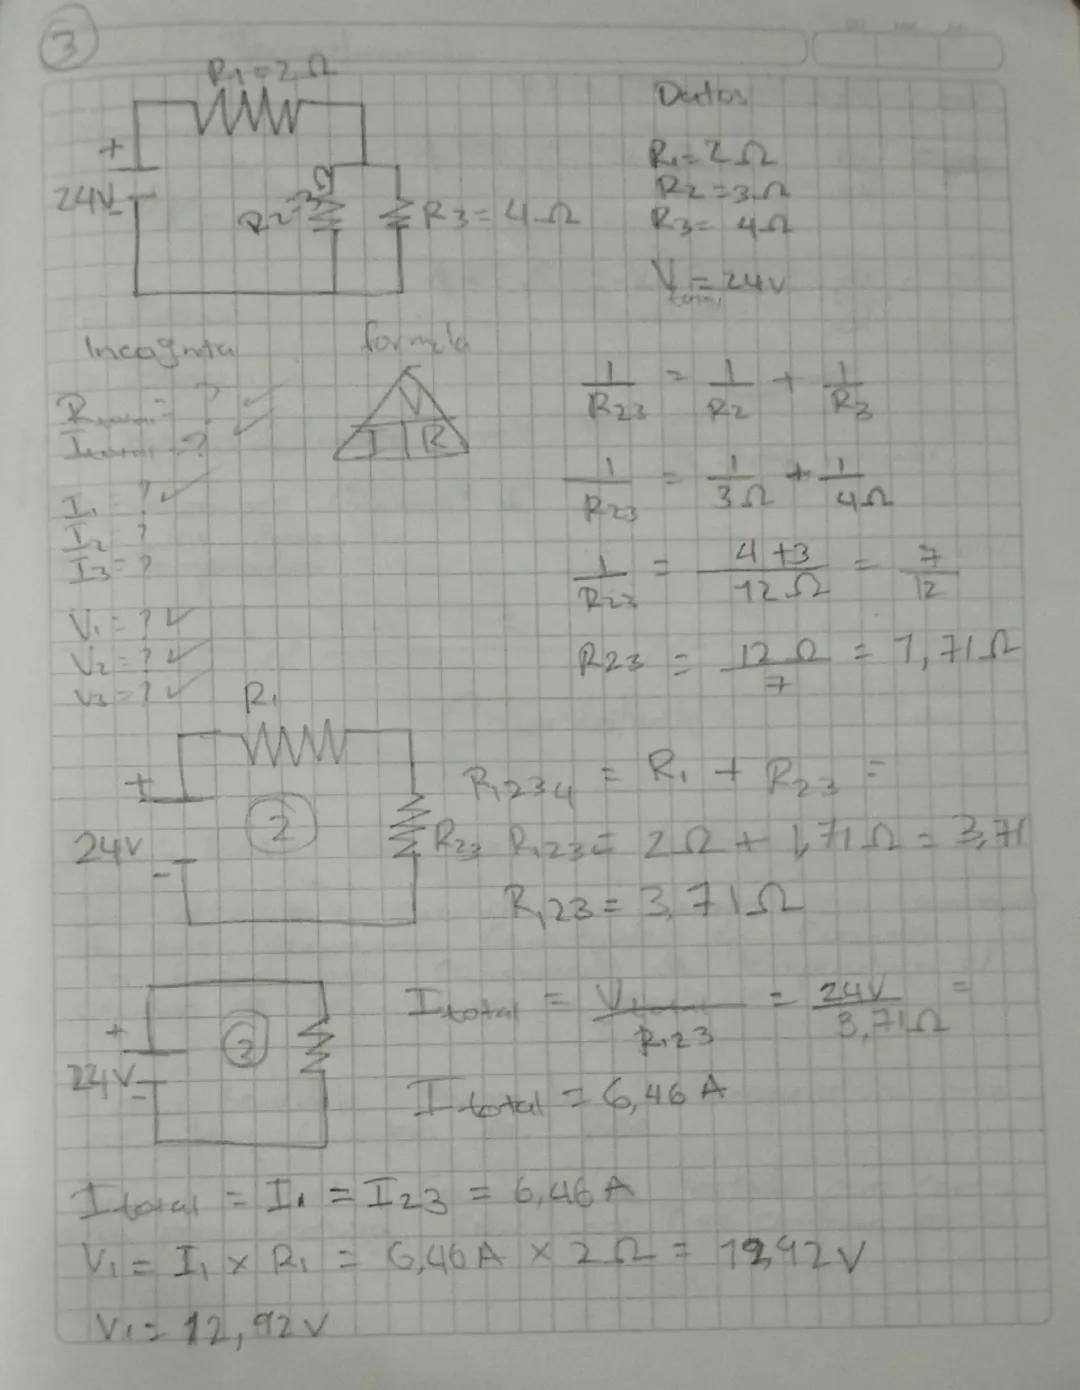 3
R1=2Ω
+
24V
-
R2=3Ω
R3=4Ω
Datos
R1=2Ω
R2=3Ω
R3=4Ω
V total=24v
Incognita
R total=?
I total=?
I1=?
I2=?
I3=?
V1=?
V2=?
V3=?
formula
V
I R
1/R23 = 1/R2 + 1/R3
1/R23 = 1/3Ω + 1/4Ω
1/R23 = 4+3/12Ω = 7/12
R23 = 12Ω/7 = 1,71Ω
R1
+
24V
-
2
R23
R1234 = R1 + R23 =
R123= 2Ω + 1,71Ω = 3,71
R123= 3,71Ω
+
24V
-
3
I total = V total/R123 = 24V/3,71Ω =
I total = 6,46 A
I total = I1 = I23 = 6,46 A
V1 = I1 x R1 = 6,46A x 2Ω = 12,92V
V1= 12,92V